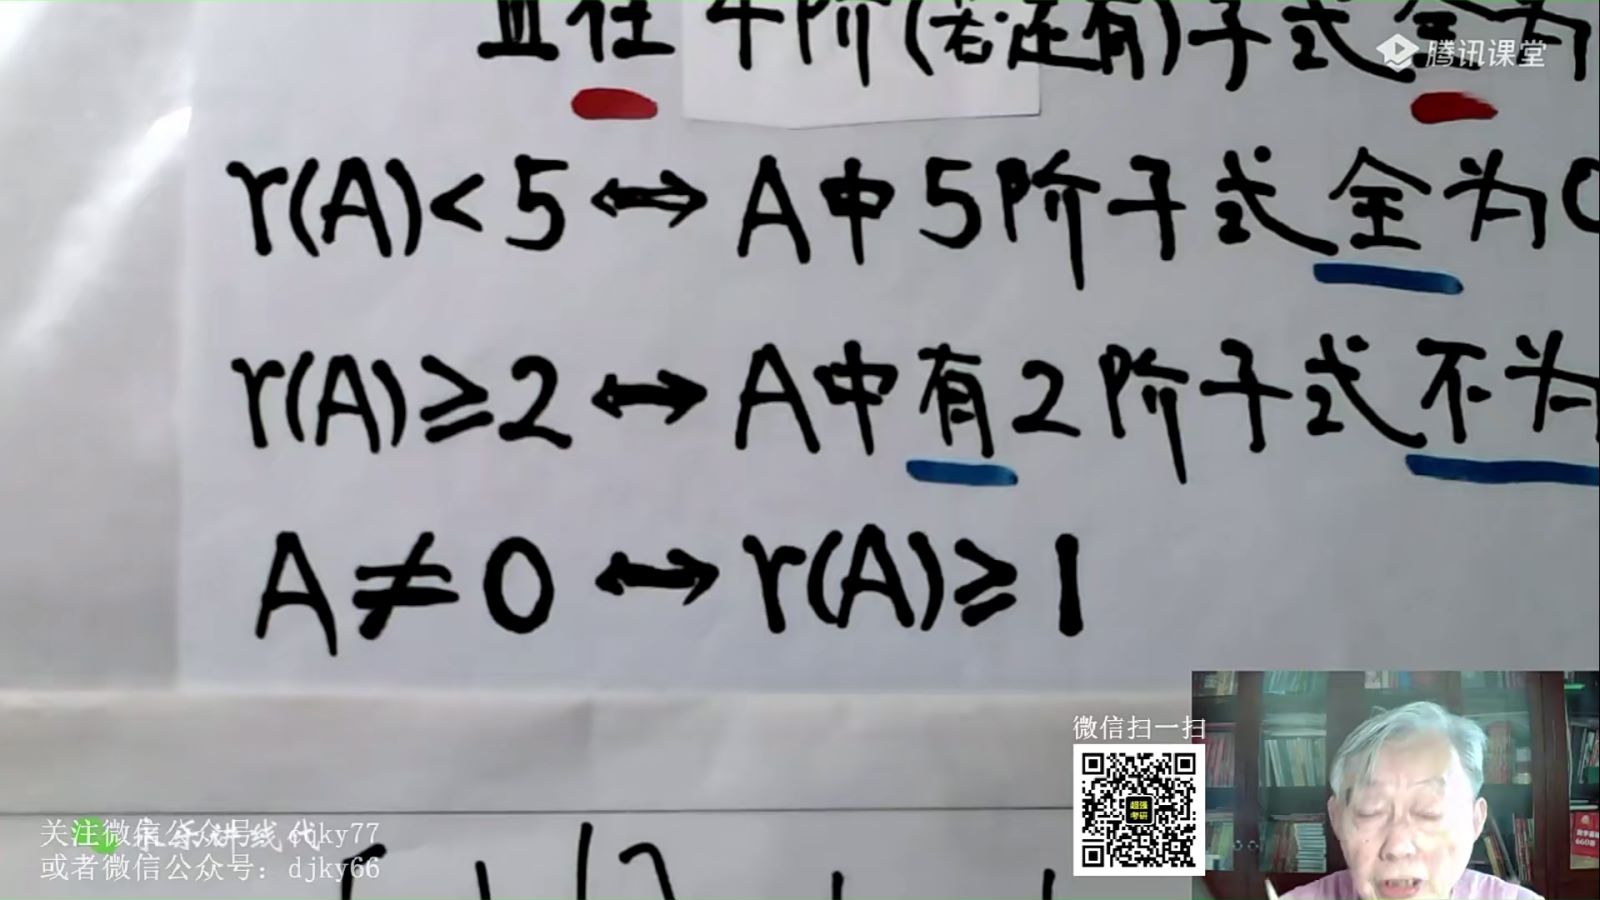 且任4阶(若还有)子式全为
腾讯课堂
r(A)<5↔A中5阶子式全为0
r(A)≥2↔A中有2阶子式不为
A≠0↔r(A)≥1
微信扫一扫
超强
考研
关注微信公众号: djky77
或者微信公众号: djky66